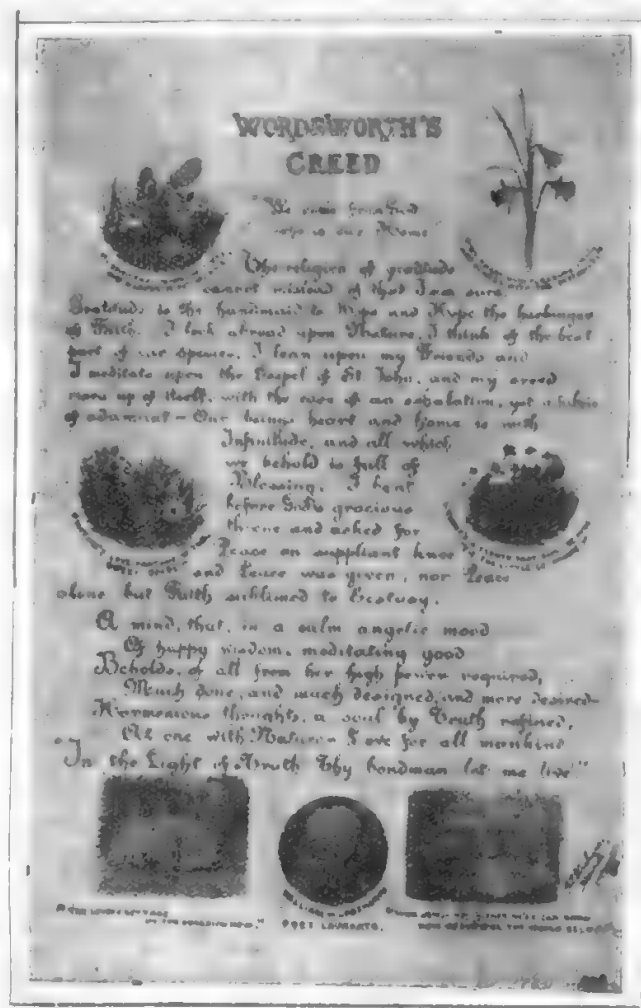 WORDSWORTH'S
CREED
"We come from God
who is our Home"
The religion of gratitude
cannot mislead of that I am sure
Gratitude is the handmaid to Hope and Hope the harbinger
of Faith. I look abroad upon Nature, I think of the best
part of our species, I lean upon my Friends and
I meditate upon the Gospel of St John, and my creed
rises up of itself, with the ease of an exhalation, yet a fabric
of adamant – Our being's heart and home is with
Infinitude, and all which
we behold is full of
Blessing. I bent
before God's gracious
throne and asked for
Peace on suppliant knee
and Peace was given, nor Peace
alone but Faith sublimed to Ecstasy.
A mind, that, in a calm angelic mood
Of happy wisdom, meditating good
Beholds, of all from her high power required,
Much done, and much designed, and more desired–
Harmonious thoughts, a soul by Truth refined,
At one with Nature – Love for all mankind
"In the Light of Truth Thy bondman let me live"
WILLIAM WORDSWORTH
POET LAUREATE.